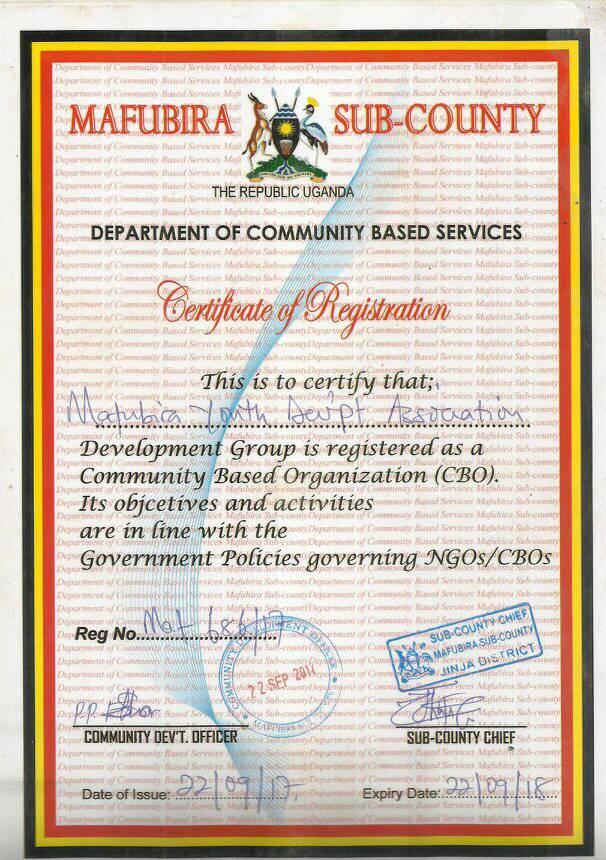 MAFUBIRA SUB-COUNTY
THE REPUBLIC UGANDA
DEPARTMENT OF COMMUNITY BASED SERVICES
Certificate of Registration
This is to certify that;
Mafubira Youth Dev'pt Association
Development Group is registered as a
Community Based Organization (CBO).
Its objcetives and activities
are in line with the
Government Policies governing NGOs/CBOs
Reg No.
SUB-COUNTY CHIEF
MAFUBIRA SUB-COUNTY
JINJA DISTRICT
22 SEP
P.P.
COMMUNITY DEV'T. OFFICER
SUB-COUNTY CHIEF
Date of Issue: 22/09/17
Expiry Date: 22/09/18